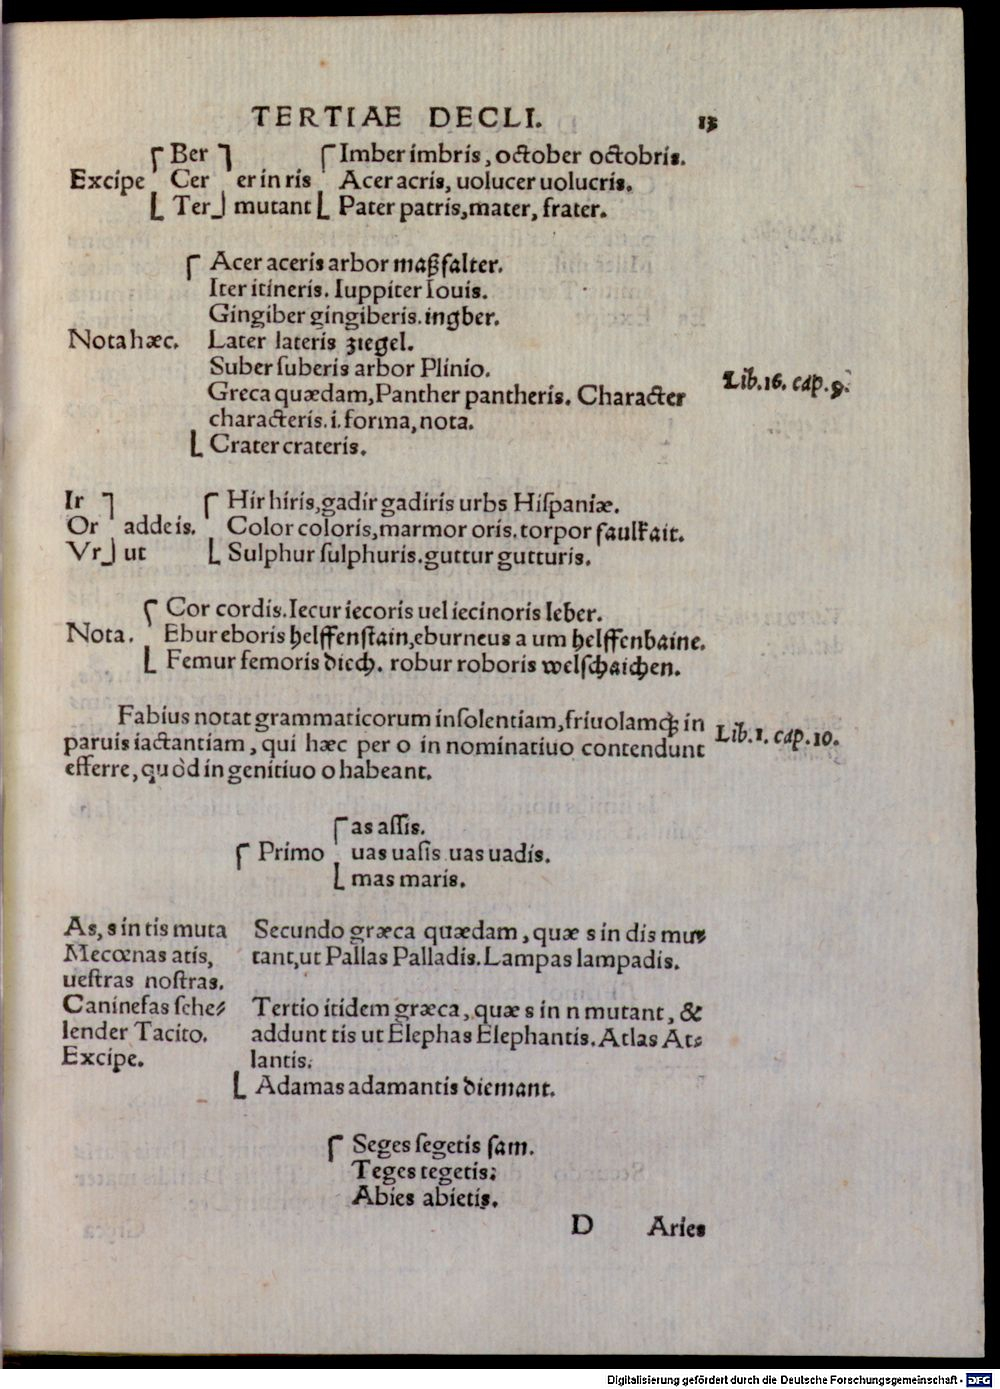 TERTIAE DECLI. 13
Ber Imber imbris, october octobris.
Excipe Cer er in ris Acer acris, uolucer uolucris.
Ter mutant Pater patris, mater, frater.
Acer aceris arbor maßfalter.
Iter itineris. Iuppiter Iouis.
Gingiber gingiberis. ingber.
Nota hæc. Later lateris ziegel.
Suber ſuberis arbor Plinio.
Greca quædam, Panther pantheris. Character
Lib. 16. cap. 9.
characteris. i. forma, nota.
Crater crateris.
Ir Hir hiris, gadir gadiris urbs Hiſpaniæ.
Or adde is. Color coloris, marmor oris. torpor faulkait.
Vr ut Sulphur ſulphuris. guttur gutturis.
Cor cordis. Iecur iecoris uel iecinoris leber.
Nota. Ebur eboris helffenſtain, eburneus a um helffenbaine.
Femur femoris diech. robur roboris welſchaichen.
Fabius notat grammaticorum inſolentiam, friuolamq́ꝫ in
paruis iactantiam, qui hæc per o in nominatiuo contendunt
Lib. 1. cap. 10.
efferre, quòd in genitiuo o habeant.
as aſſis.
Primo uas uaſis uas uadis.
mas maris.
As, s in tis muta
Mecœnas atis,
ueſtras noſtras.
Caninefas ſche⸗
lender Tacito.
Excipe.
Secundo græca quædam, quæ s in dis mu⸗
tant, ut Pallas Palladis. Lampas lampadis.
Tertio itidem græca, quæ s in n mutant, &
addunt tis ut Elephas Elephantis. Atlas At⸗
lantis.
Adamas adamantis diemant.
Seges ſegetis ſam.
Teges tegetis:
Abies abietis.
D Aries
Digitalisierung gefördert durch die Deutsche Forschungsgemeinschaft - DFG